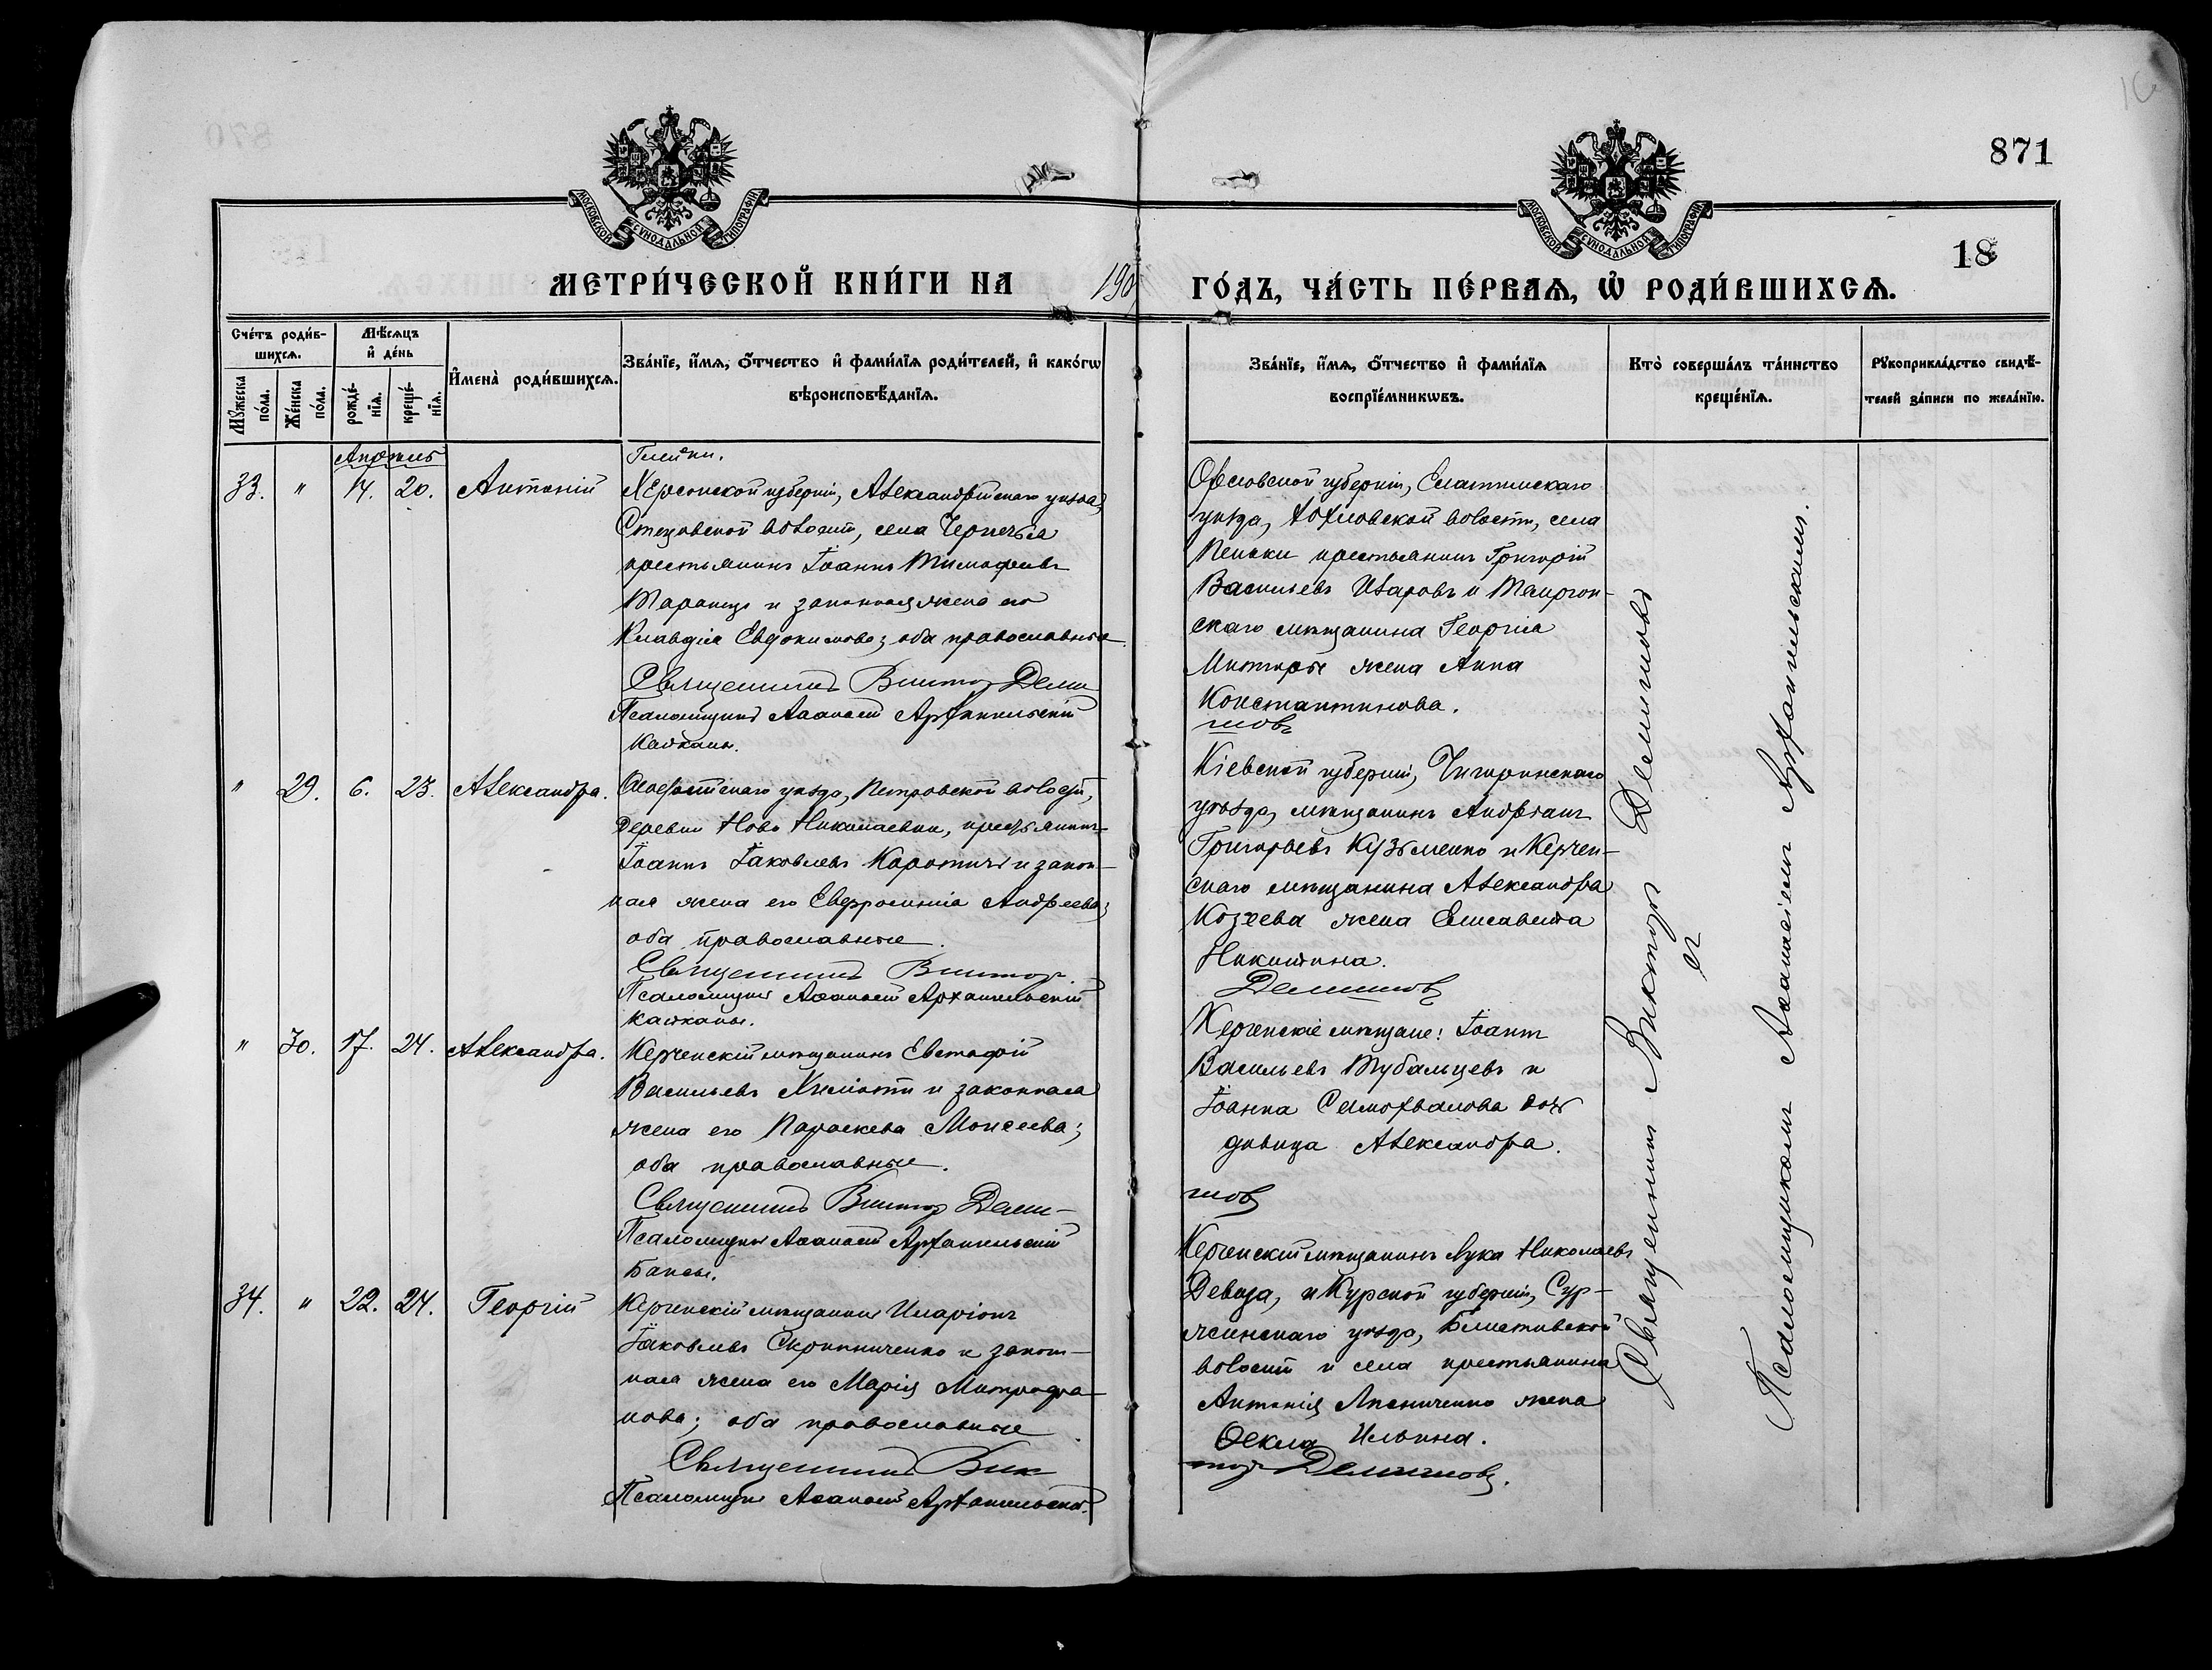 871
18
МОСКОВСКОЙ СѴНОДАЛЬНОЙ ТИПОГРАФІИ
МОСКОВСКОЙ СѴНОДАЛЬНОЙ ТИПОГРАФІИ
МЕТРИ́ЧЕСКОЙ КНИ́ГИ НА 190 ГО́ДЪ, ЧА́СТЬ ПЕ́РВАѦ, Ѡ҆ РОДИ́ВШИХСѦ.
Сче́тъ роди́в-
шихсѧ.
Мꙋ́жеска по́ла.
Же́нска по́ла.
Мѣ́сѧцъ
и҆ де́нь
рожде́-
нїѧ.
креще́-
нїѧ.
И҆мена̀ роди́вшихсѧ.
Зва́нїе, и҆́мѧ, ѻ҆́тчество и҆ фами́лїѧ роди́телей, и҆ како́гѡ
вѣроисповѣ́данїѧ.
Зва́нїе, и҆́мѧ, ѻ҆́тчество и҆ фами́лїѧ
воспрїе́мникѡвъ.
Кто̀ соверша́лъ та́инство
креще́нїѧ.
Рꙋкоприкла́дство свидѣ́-
телей за́писи по жела́нїю.
Апрѣль
33. " 14. 20. Антоній
Глейки.
Херсонской губерніи, Александрійскаго уѣзда,
волости, села Чернечья
крестьянинъ Іоаннъ Тимофеевъ
Таранецъ и законная жена его
Клавдія Евдокимова; оба православные.
Священникъ Виктор Деми-
Псаломщикъ Аѳанасій Архангельскій
Орловской губерніи, Елатминскаго
уѣзда, волости, села
Пеньки крестьянинъ Григорій
Васильевъ Уваровъ и
скаго мѣщанина Георгія
жена Анна
Константинова.
шовъ
Каяканы.
" 29. 6. 23. Александра.
Ѳеодосійскаго уѣзда, Петровской волости,
деревни Ново Николаевки, крестьянинъ
Іоаннъ Іаковлевъ и закон-
ная жена его Евфросинія Андреева;
оба православные.
Священникъ Виктор
Псаломщикъ Аѳанасій Архангельскій
Кіевской губерніи, Чигиринскаго
уѣзда, мѣщанинъ Андріанъ
Григорьевъ Кузьменко и Керчен-
скаго мѣщанина Александра
Козеева жена Елисавета
Никитина.
Демишовъ
Каяканы.
" 30. 17. 24. Александра.
Керченскій мѣщанинъ Евстафій
Васильевъ и законная
жена его Параскева Моисеева;
оба православные.
Священникъ Виктор Деми-
Псаломщикъ Аѳанасій Архангельскій
Керченскіе мѣщане: Іоаннъ
Васильевъ Тубальцевъ и
Іоанна Самохвалова дочь
дѣвица Александра.
шовъ
Баксы.
34. " 22. 24. Георгій
Керченскій мѣщанинъ Иларіонъ
Іаковлевъ Скрипниченко и закон-
ная жена его Марія Митрофа-
нова; оба православные.
Священникъ Вик-
Псаломщикъ Аѳанасій Архангельскій.
Керченскій мѣщанинъ Лука Николаевъ
Девиза, и Курской губерніи, Суд-
жинскаго уѣзда,
волости и села крестьянина
Антонія жена
Ѳекла Ильина.
тор Демишовъ.
Священникъ Викторъ Демишовъ
съ
Псаломщикомъ Аѳанасіемъ Архангельскимъ.